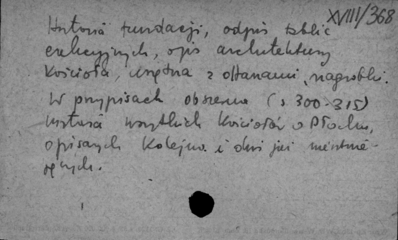 XVIII/368
Historia fundacji, odpis tablic
erekcyjnych, opis architektury
Kościoła, wnętrza z ołtarzami, nagrobki.
W przypisach obszerna (s 300-315)
historia wszystkich Kościołów w Płocku,
opisanych Kolejno i dziś już nieistnie-
jących.